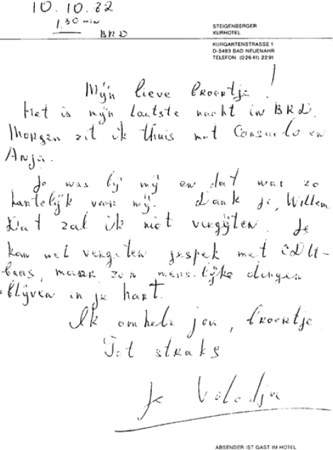 10.10.82
1.30 min
BRD
STEIGENBERGER
KURHOTEL
KURGARTENSTRASSE 1
D-5483 BAD NEUENAHR
TELEFON: (0 26 41) 22 91
Mijn lieve broertje!
Het is mijn laatste nacht in BRD.
Morgen zit ik thuis met Consuelo en
Anja.
Je was bij mij en dat was zo
hartelijk voor mij. Dank je, Willem
Dat zal ik niet vergeten. Je
kom met vergeten jespek met
baas, maar zo'n menselijke dingen
blijven in je hart.
Ik omhels jou, broertje
Tot straks
Je Volodja
ABSENDER IST GAST IM HOTEL